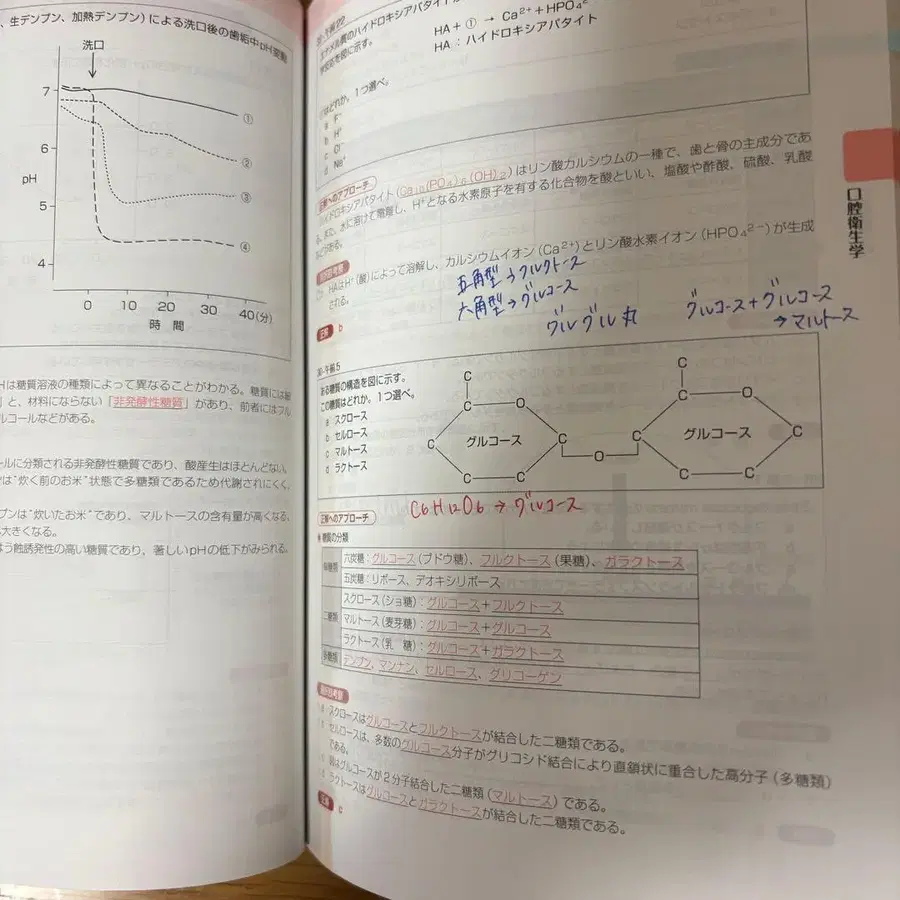 、生デンプン、加熱デンプン)による洗口後の歯垢中pH変動
洗口
7
6
pH
5
4
①
②
③
④
0 10 20 30 40(分)
時 間
Hは糖質溶液の種類によって異なることがわかる。糖質には
」と、材料にならない「非発酵性糖質」があり、前者にはフル
コールなどがある。
ールに分類される非発酵性糖質であり、酸産生はほとんどない。
は"炊く前のお米"状態で多糖類であるため代謝されにくく、
プンは"炊いたお米"であり、マルトースの含有量が高くなる、
大きくなる。
う蝕誘発性の高い糖質であり、著しいpHの低下がみられる。
エナメル質のハイドロキシアパタイト
学反応を図に示す。
HA+① → Ca²⁺+HPO₄²⁻
HA:ハイドロキシアパタイト
①はどれか。1つ選べ。
a F⁻
b H⁺
c Cl⁻
d Na⁺
正解へのアプローチ
ハイドロキシアパタイト(Ca₁₀(PO₄)₆(OH)₂)はリン酸カルシウムの一種で、歯と骨の主成分であ
る。また、水に溶けて電離し、H⁺となる水素原子を有する化合物を酸といい、塩酸や酢酸、硫酸、乳酸
などがある。
HAはH⁺(酸)によって溶解し、カルシウムイオン(Ca²⁺)とリン酸水素イオン(HPO₄²⁻)が生成
される。
正解 b
五角型→フルクトース
六角型→グルコース
グルグル丸
グルコース+グルコース
→マルトース
口腔衛生学
30-午前5
ある糖質の構造を図に示す。
この糖質はどれか。1つ選べ。
a スクロース
b セルロース
c マルトース
d ラクトース
C O C C C C
グルコース
O
C O C C C C
グルコース
正解へのアプローチ
C6H12O6→グルコース
糖質の分類
単糖類
六炭糖:グルコース(ブドウ糖)、フルクトース(果糖)、ガラクトース
五炭糖:リボース、デオキシリボース
二糖類
スクロース(ショ糖):グルコース+フルクトース
マルトース(麦芽糖):グルコース+グルコース
ラクトース(乳 糖):グルコース+ガラクトース
多糖類
デンプン、マンナン、セルロース、グリコーゲン
スクロースはグルコースとフルクトースが結合した二糖類である。
セルロースは、多数のグルコース分子がグリコシド結合により直鎖状に重合した高分子(多糖類)
である。
図はグルコースが2分子結合した二糖類(マルトース)である。
ラクトースはグルコースとガラクトースが結合した二糖類である。
正解 c